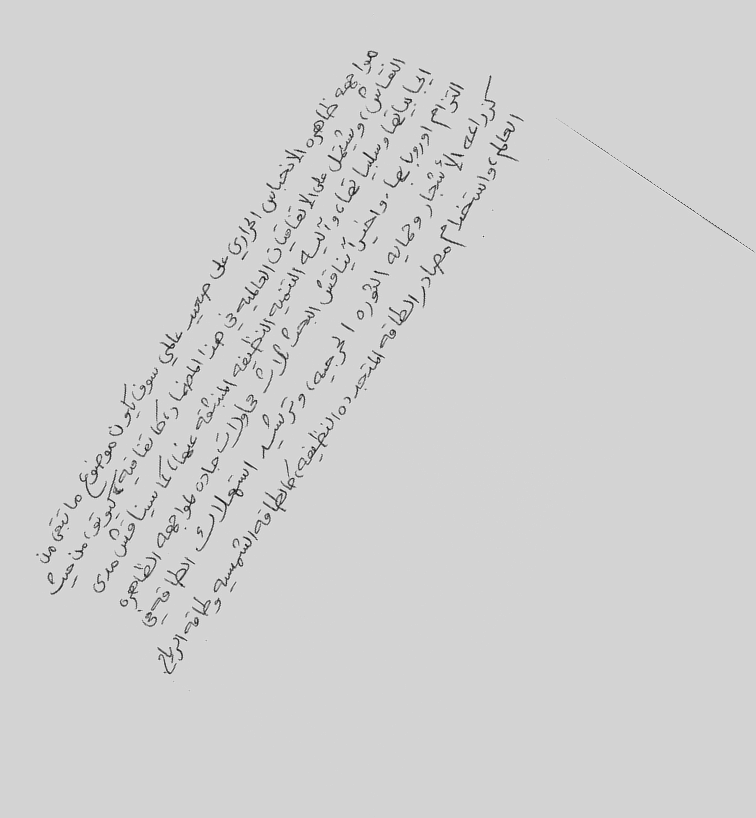 مواجهة ظاهرة الانحباس الحراري على صعيد عالمي سوف يكون موضوع ما تبقى من
النقاش، وشتمل على الاتفاقيات العالمية في هذا المضمار، كاتفاقية كيوتو، من حيث
ايجابياتها وسلبياتها، وآلية التنمية النظيفة المنبثقة عنها، كما سيناقش مدى
التزام اوروبا بها، واخيرا يناقش البحث ثلاث محاولات جادة لمواجهة الظاهرة
كزراعة الأشجار وحماية الثورة الحرجية، وترشيد استهلاك الطاقة في
العالم، واستخدام مصادر الطاقة المتجددة النظيفة، كالطاقة الشمسية وطاقة الرياح